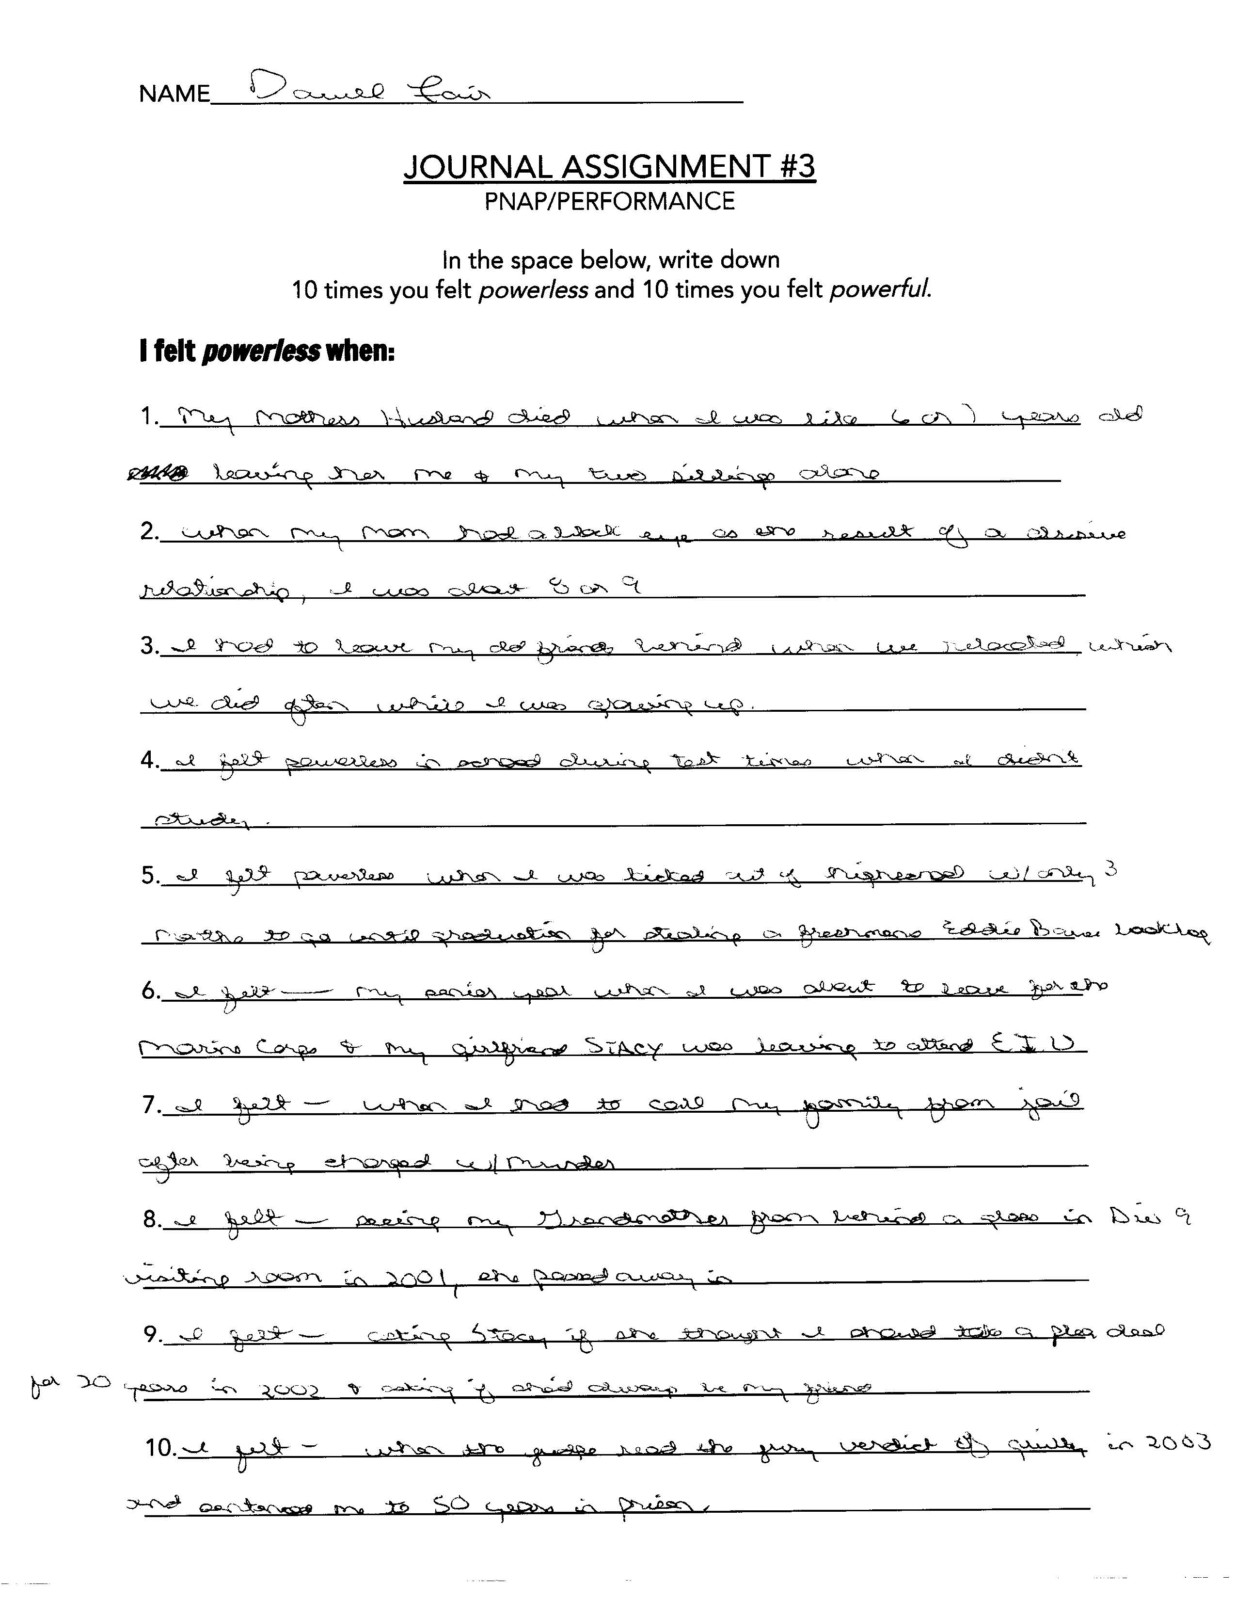 NAME Daniel Fair
JOURNAL ASSIGNMENT #3
PNAP/PERFORMANCE
In the space below, write down
10 times you felt powerless and 10 times you felt powerful.
I felt powerless when:
1. My Mothers Husband died when I was like 6 or 7 years old
leaving her me & my two siblings alone
2. when my mom had a black eye as the result of a abusive
relationship, I was about 8 or 9
3. I had to leave my old friends behind when we relocated, which
we did often while I was growing up.
4. I felt powerless in school during test times when I didn't
study.
5. I felt powerless when I was kicked out of highschool w/ only 3
months to go until graduation for stealing a freshmens Eddie Bauer bookbag
6. I felt — my senior year when I was about to leave for the
Marine Corps & my girlfriend STACY was leaving to attend E I U
7. I felt — when I had to call my family from jail
after being charged w/ murder
8. I felt — seeing my Grandmother from behind a glass in Div 9
visiting room in 2001, she passed away in
9. I felt — asking Stacy if she thought I should take a plea deal
for 20 years in 2002 & asking if she'd always be my friend
10. I felt — when the judge read the jury verdict of guilty in 2003
and sentenced me to 50 years in prison.